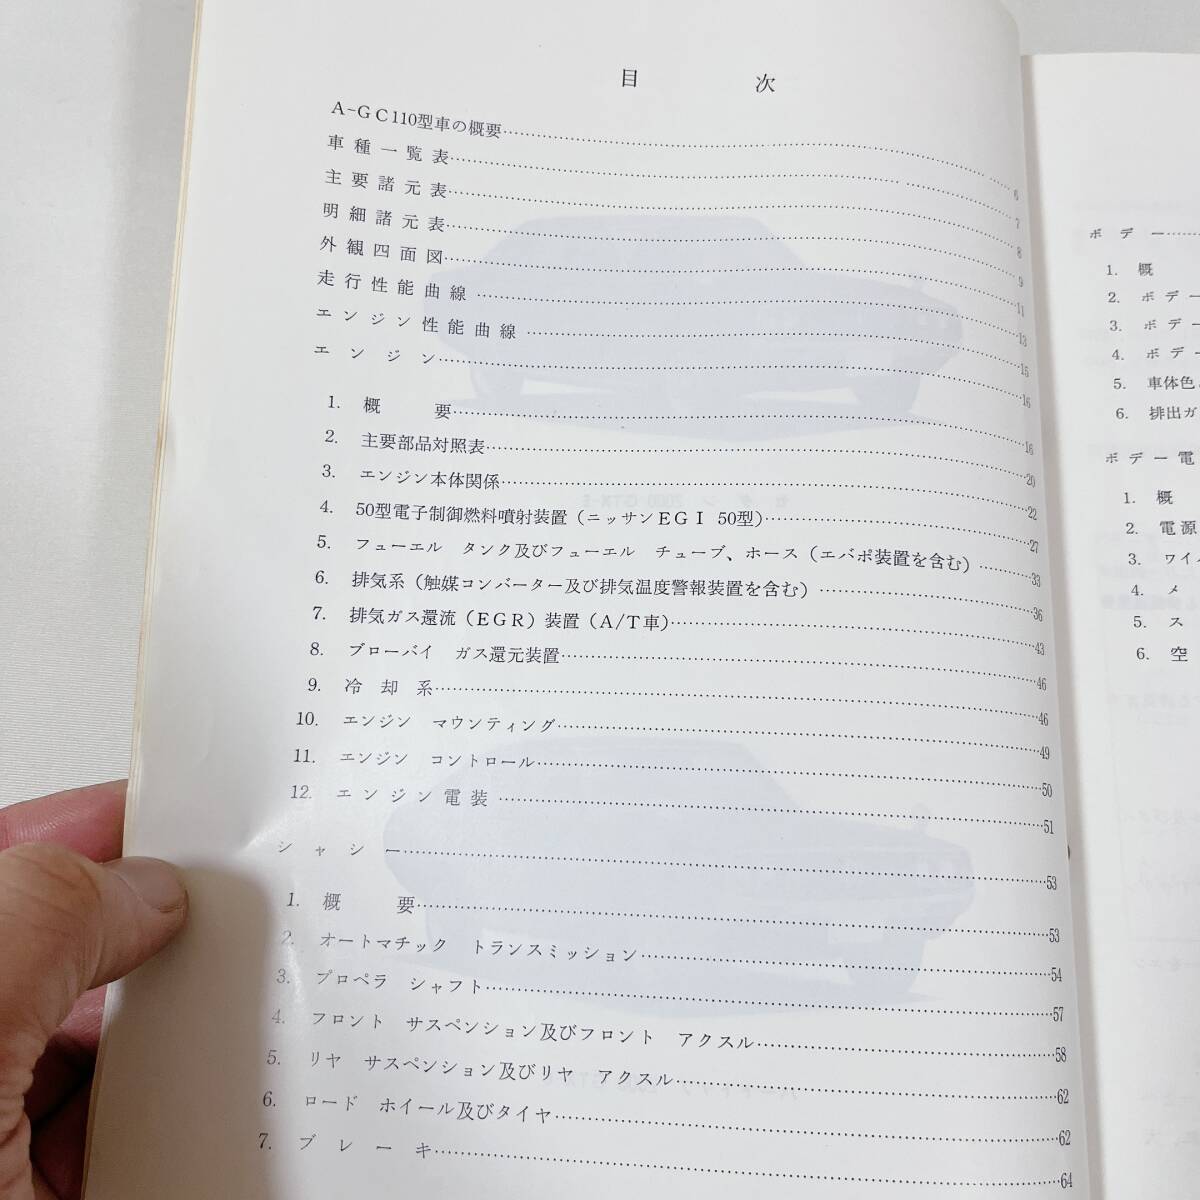 目　次
A-GC110型車の概要……6
車種一覧表……7
主要諸元表……8
明細諸元表……9
外観四面図……11
走行性能曲線……13
エンジン性能曲線……15
エンジン……16
1. 概　要……16
2. 主要部品対照表……20
3. エンジン本体関係……22
4. 50型電子制御燃料噴射装置（ニッサンEGI 50型）……27
5. フューエル タンク及びフューエル チューブ、ホース（エバポ装置を含む）……33
6. 排気系（触媒コンバーター及び排気温度警報装置を含む）……36
7. 排気ガス還流（EGR）装置（A/T車）……43
8. ブローバイ ガス還元装置……46
9. 冷却系……46
10. エンジン マウンティング……49
11. エンジン コントロール……50
12. エンジン電装……51
シャシー……53
1. 概　要……53
2. オートマチック トランスミッション……54
3. プロペラ シャフト……57
4. フロント サスペンション及びフロント アクスル……58
5. リヤ サスペンション及びリヤ アクスル……62
6. ロード ホイール及びタイヤ……62
7. ブレーキ……64
ボデー……
1. 概
2. ボデー
3. ボデー
4. ボデ
5. 車体色
6. 排出ガ
ボデー電
1. 概
2. 電源
3. ワイ
4. メ
5. ス
6. 空